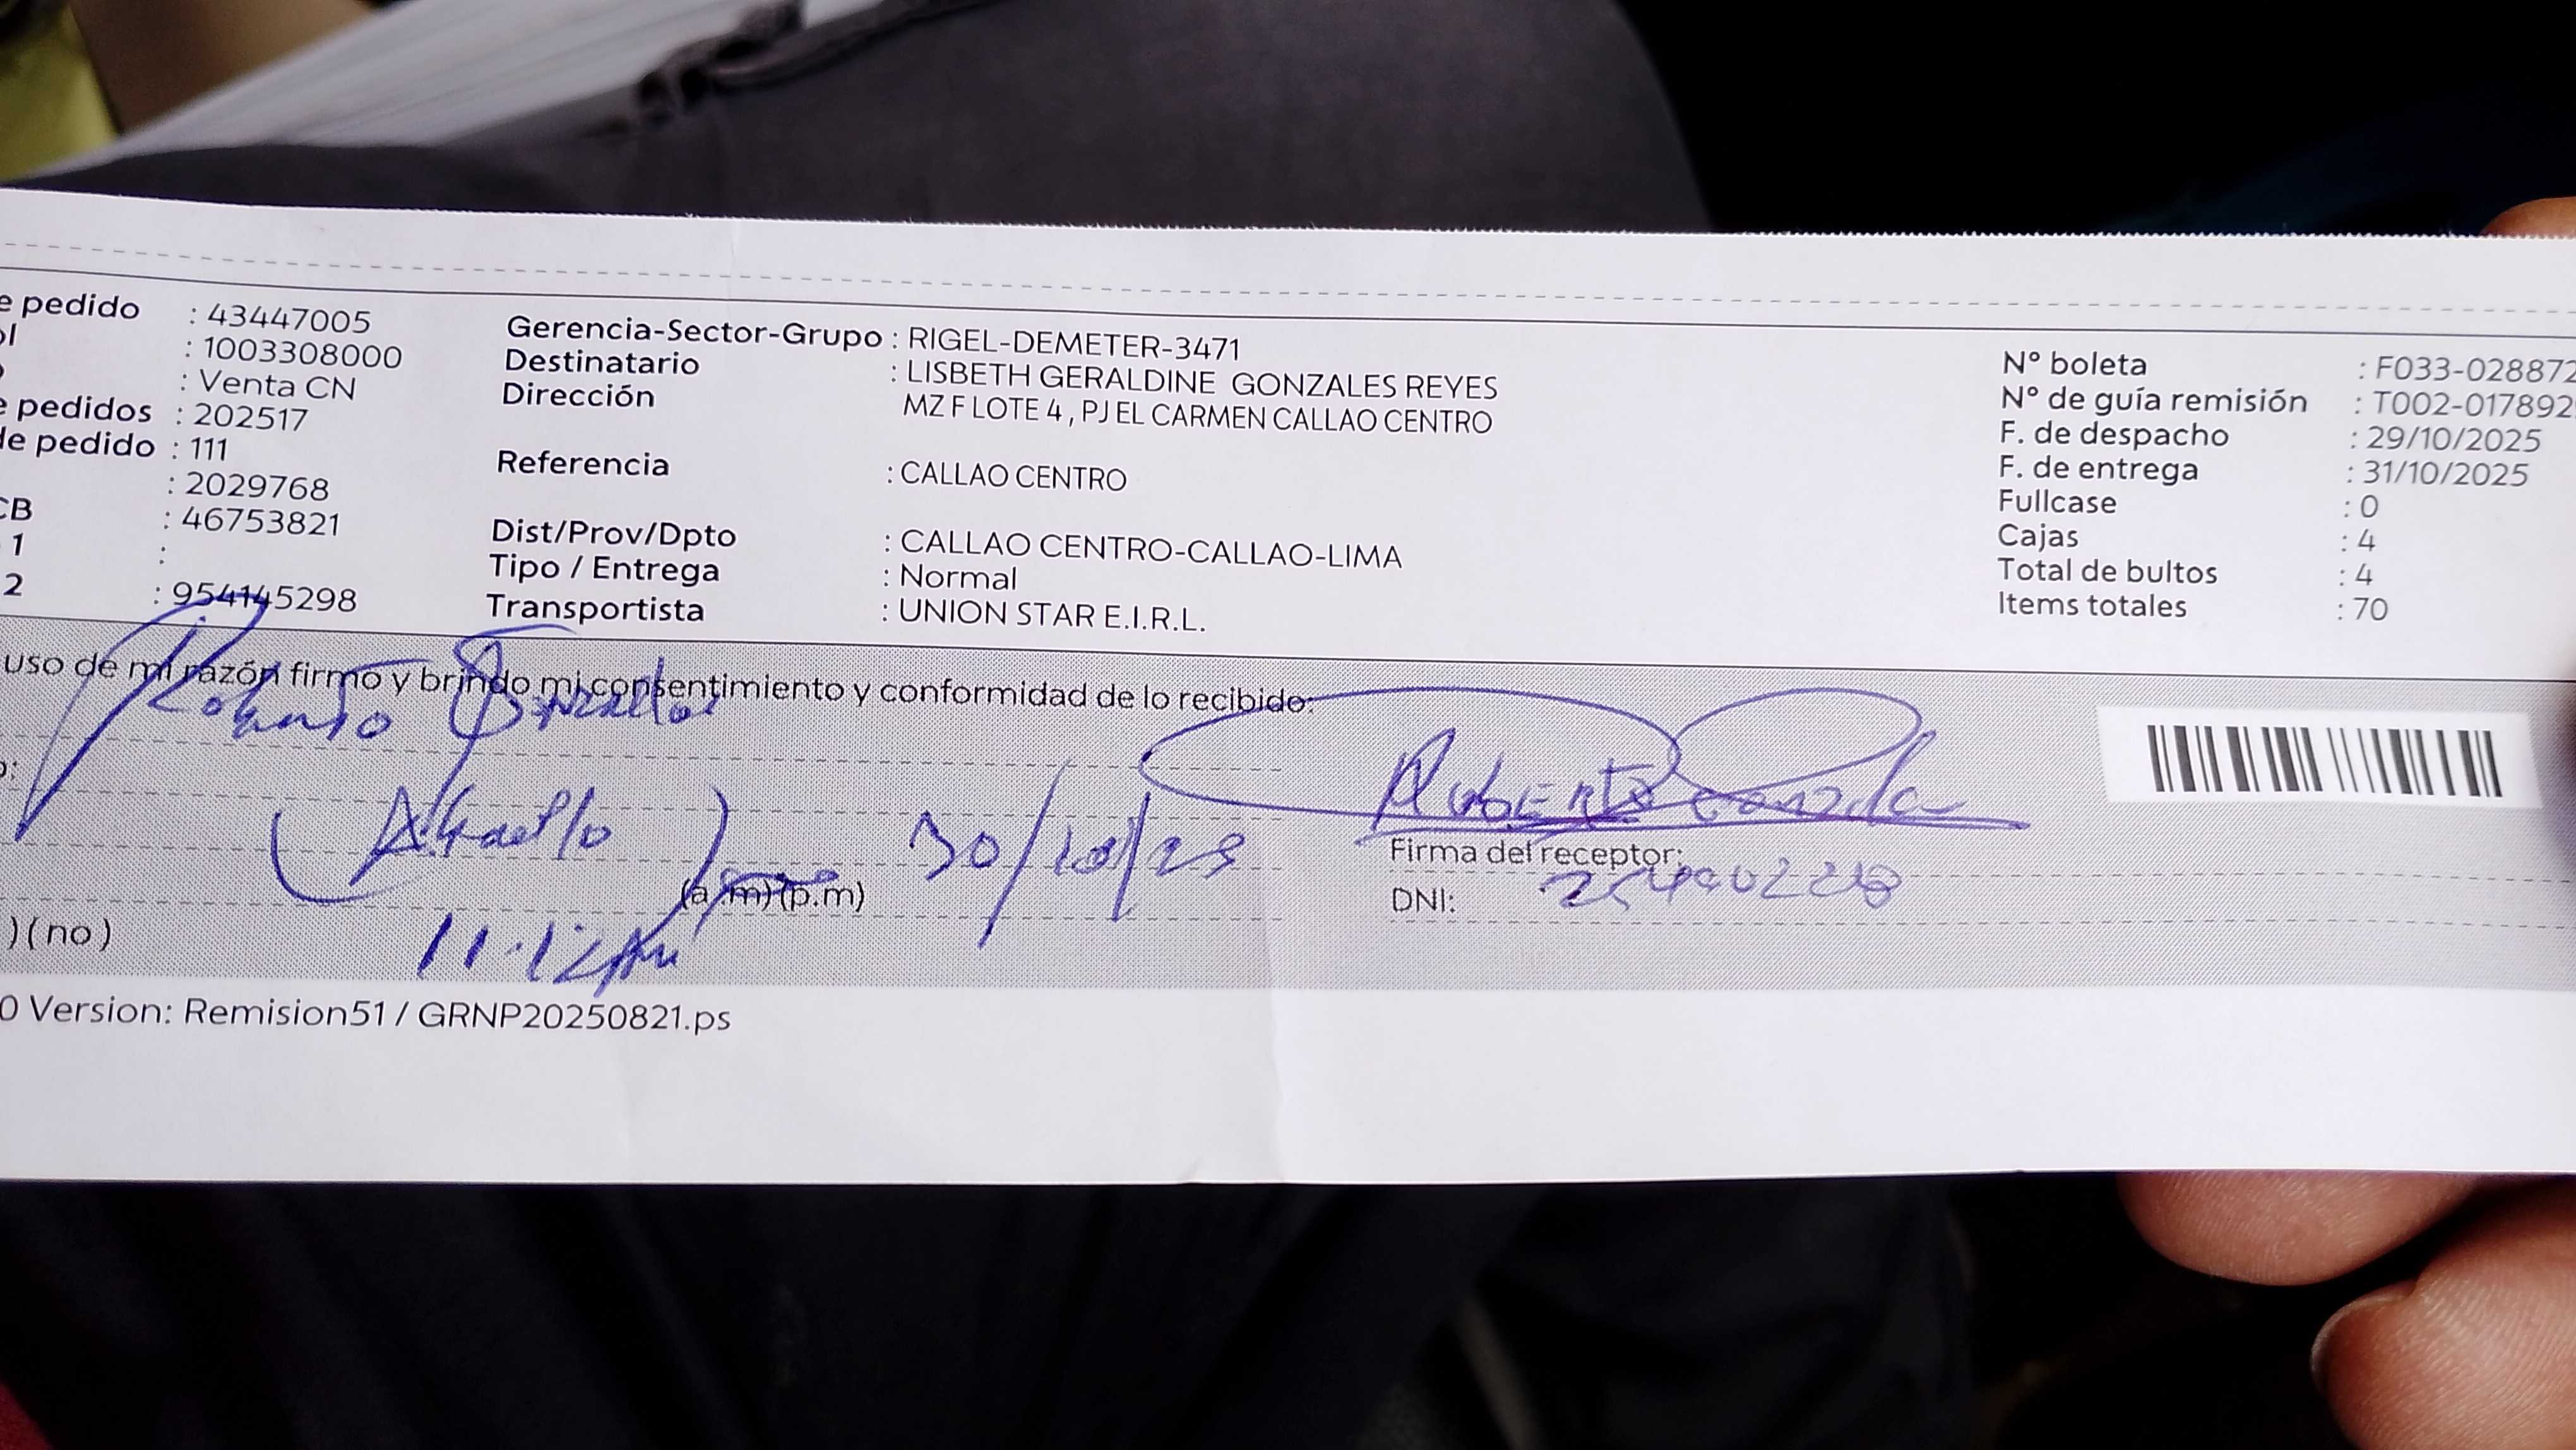 e pedido : 43447005
: 1003308000
: Venta CN
e pedidos : 202517
de pedido : 111
: 2029768
CB : 46753821
1 :
2 : 954145298
Gerencia-Sector-Grupo : RIGEL-DEMETER-3471
Destinatario : LISBETH GERALDINE GONZALES REYES
Dirección MZ F LOTE 4 , PJ EL CARMEN CALLAO CENTRO
Referencia : CALLAO CENTRO
Dist/Prov/Dpto : CALLAO CENTRO-CALLAO-LIMA
Tipo / Entrega : Normal
Transportista : UNION STAR E.I.R.L.
Nº boleta : F033-028872
Nº de guía remisión : T002-017892
F. de despacho : 29/10/2025
F. de entrega : 31/10/2025
Fullcase : 0
Cajas : 4
Total de bultos : 4
Items totales : 70
uso de mi razón firmo y brindo mi consentimiento y conformidad de lo recibido:
Gonzales
Roberto
30/10/25
Firma del receptor:
(a.m)(p.m)
DNI:
) ( no )
11:12 Am
0 Version: Remision51 / GRNP20250821.ps